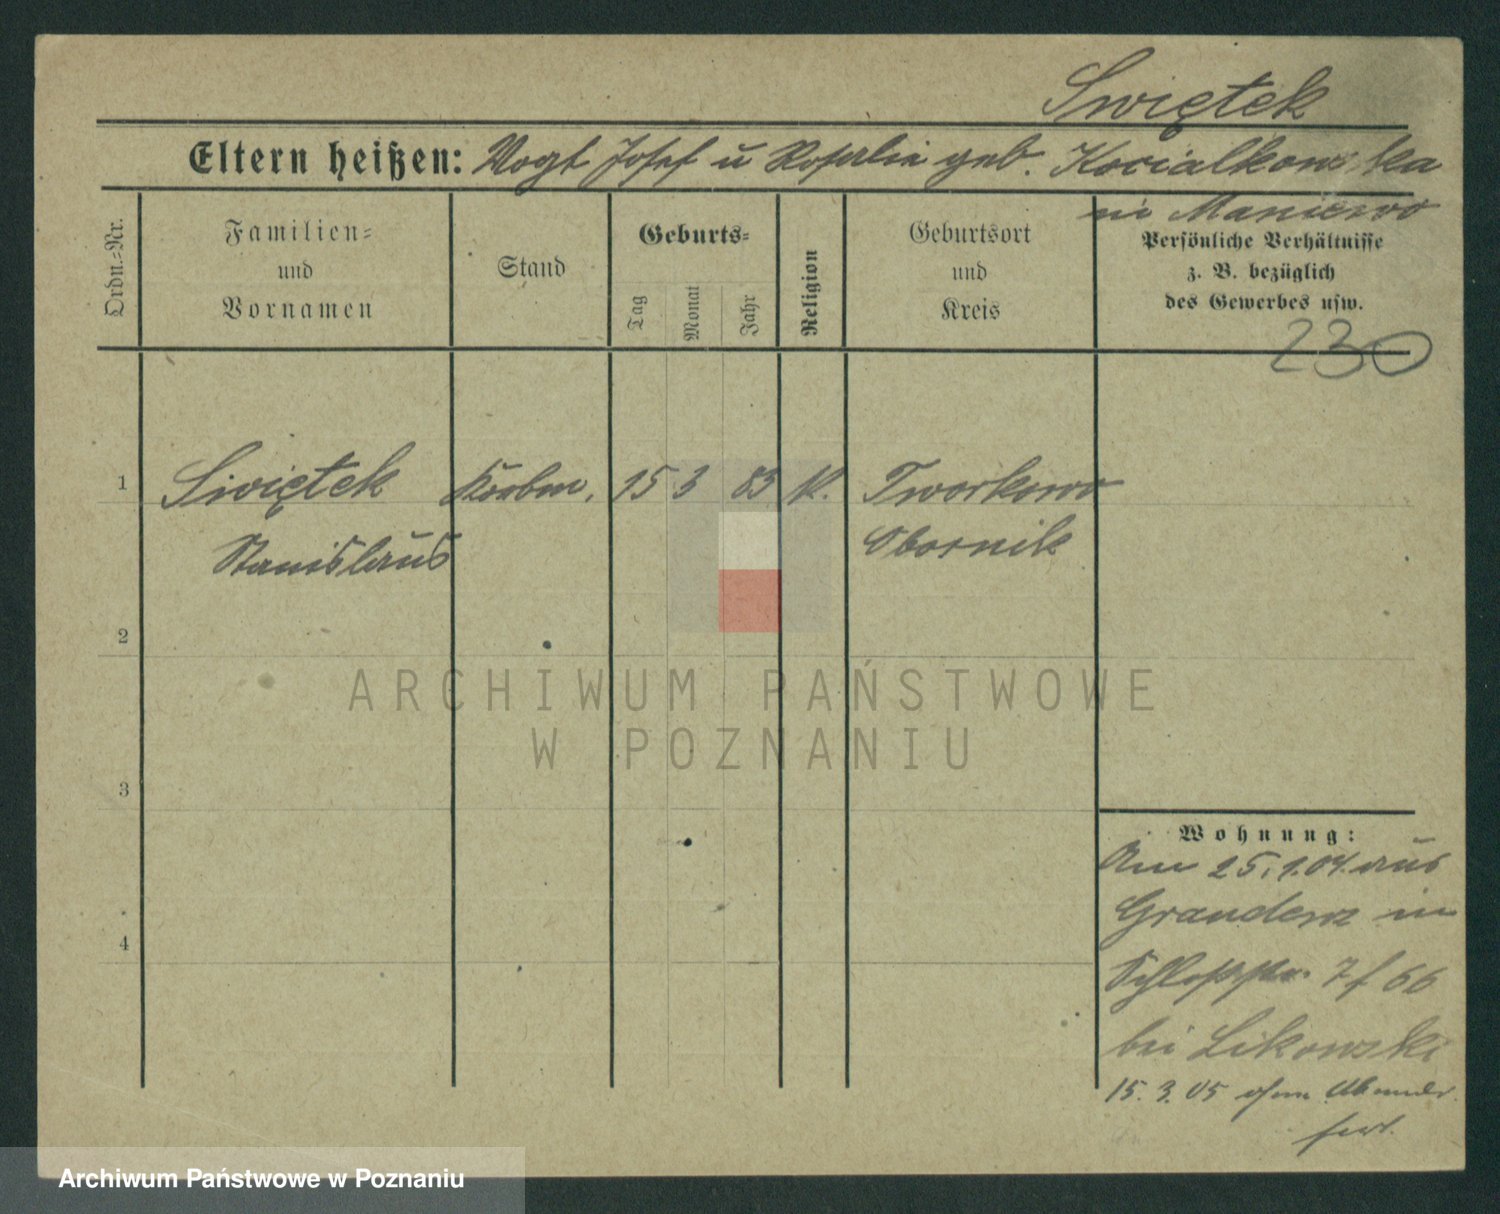 Swiętek
Eltern heißen: Vogt Josef u Rosalie geb. Kocialkowska
in Maniewo
Ordn.-Nr.
Familien=
und
Vornamen
Stand
Geburts=
Tag
Monat
Jahr
Religion
Geburtsort
und
Kreis
Persönliche Verhältnisse
z. B. bezüglich
des Gewerbes usw.
230
1 Swiętek 15 3 83 K. Tworkowo
Stanislaus Obornik
2
3
4
Wohnung:
Am 25.1.04. aus
Graudenz in
Schloßstr. 7 f 66
bei Likowski
15. 3. 05 ohne
fort.
ARCHIWUM PAŃSTWOWE
W POZNANIU
Archiwum Państwowe w Poznaniu